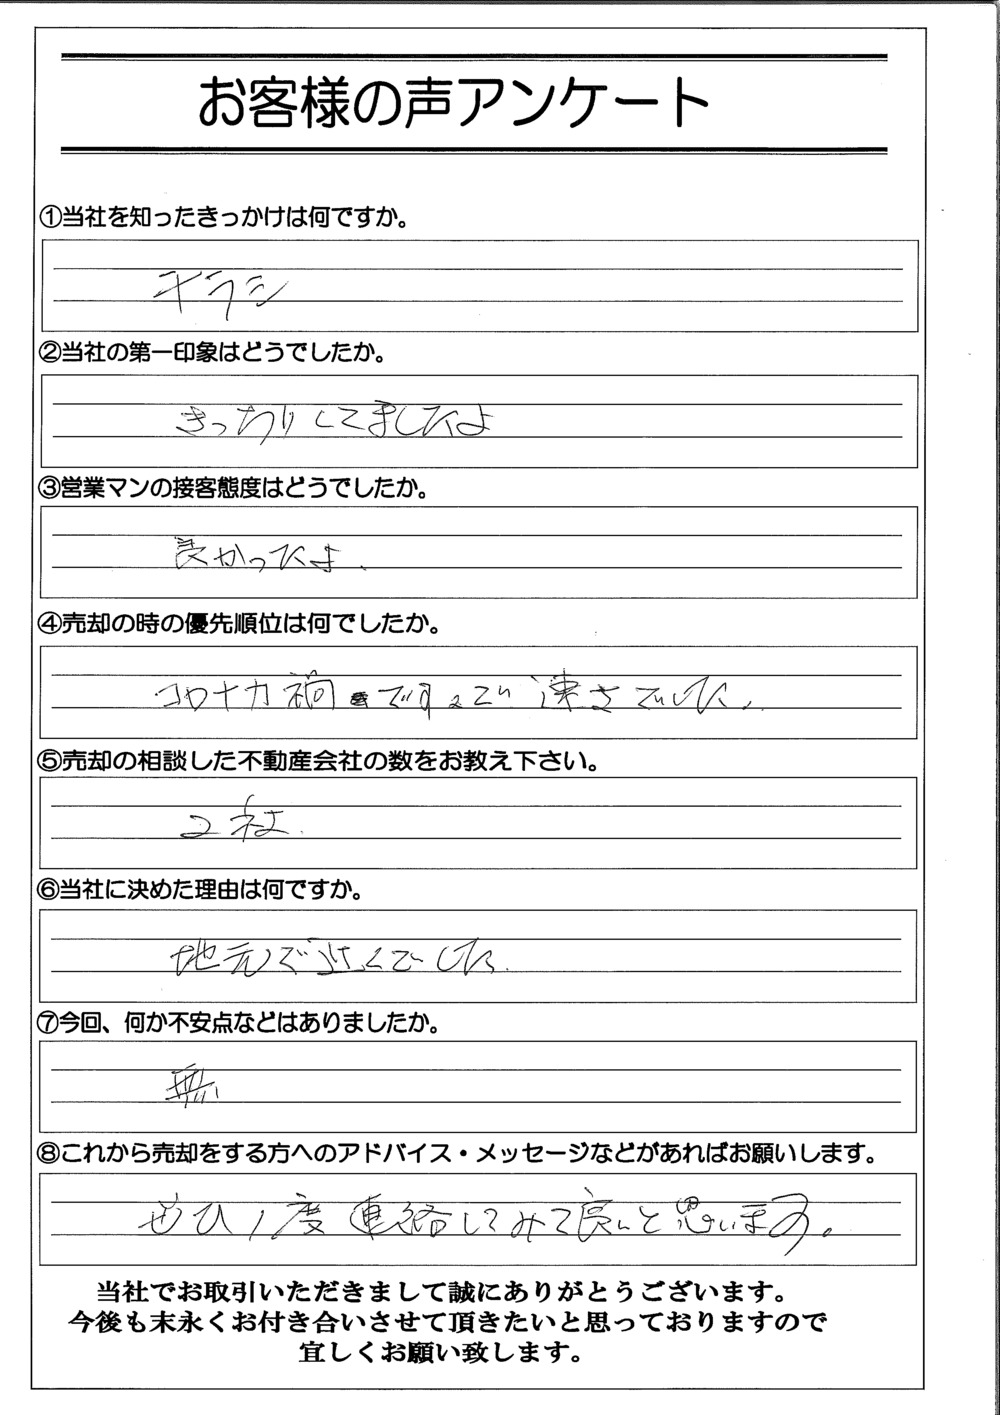 お客様の声アンケート
①当社を知ったきっかけは何ですか。
チラシ
②当社の第一印象はどうでしたか。
きっちりしてましたよ
③営業マンの接客態度はどうでしたか。
良かったよ.
④売却の時の優先順位は何でしたか。
コロナカ禍 速さでした.
⑤売却の相談した不動産会社の数をお教え下さい。
2社.
⑥当社に決めた理由は何ですか。
地元で近くでした.
⑦今回、何か不安点などはありましたか。
無い
⑧これから売却をする方へのアドバイス・メッセージなどがあればお願いします。
ぜひ1度連絡してみて良いと思います。
当社でお取引いただきまして誠にありがとうございます。
今後も末永くお付き合いさせて頂きたいと思っておりますので
宜しくお願い致します。